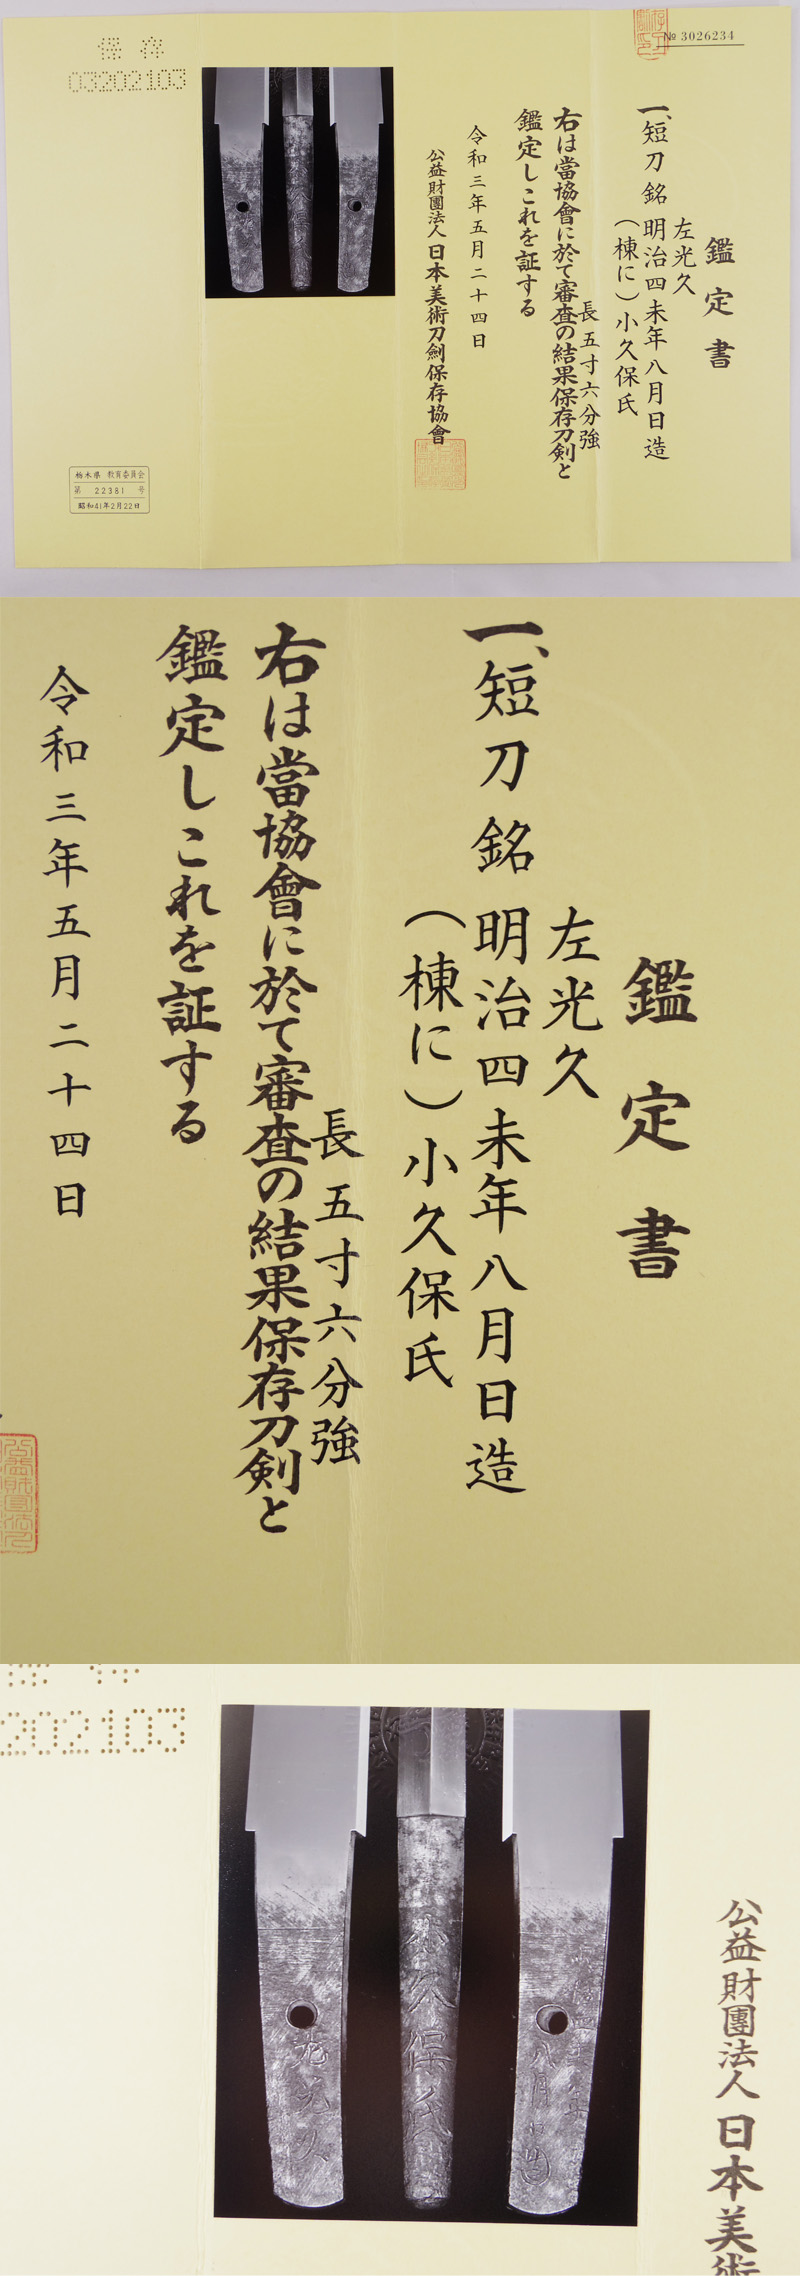 № 3026234
鑑定書
一、短刀 銘 左光久
明治四未年八月日造
(棟に)小久保氏
長五寸六分強
右は當協會に於て審査の結果保存刀剣と
鑑定しこれを証する
令和三年五月二十四日
公益財團法人 日本美術刀劍保存協會
保存
03202103
栃木県 教育委員会
第 22381 号
昭和41年2月22日
鑑定書
一、短刀 銘 左光久
明治四未年八月日造
(棟に)小久保氏
長五寸六分強
右は當協會に於て審査の結果保存刀剣と
鑑定しこれを証する
令和三年五月二十四日
202103
公益財團法人 日本美術
小久保氏
左光久
八月日造